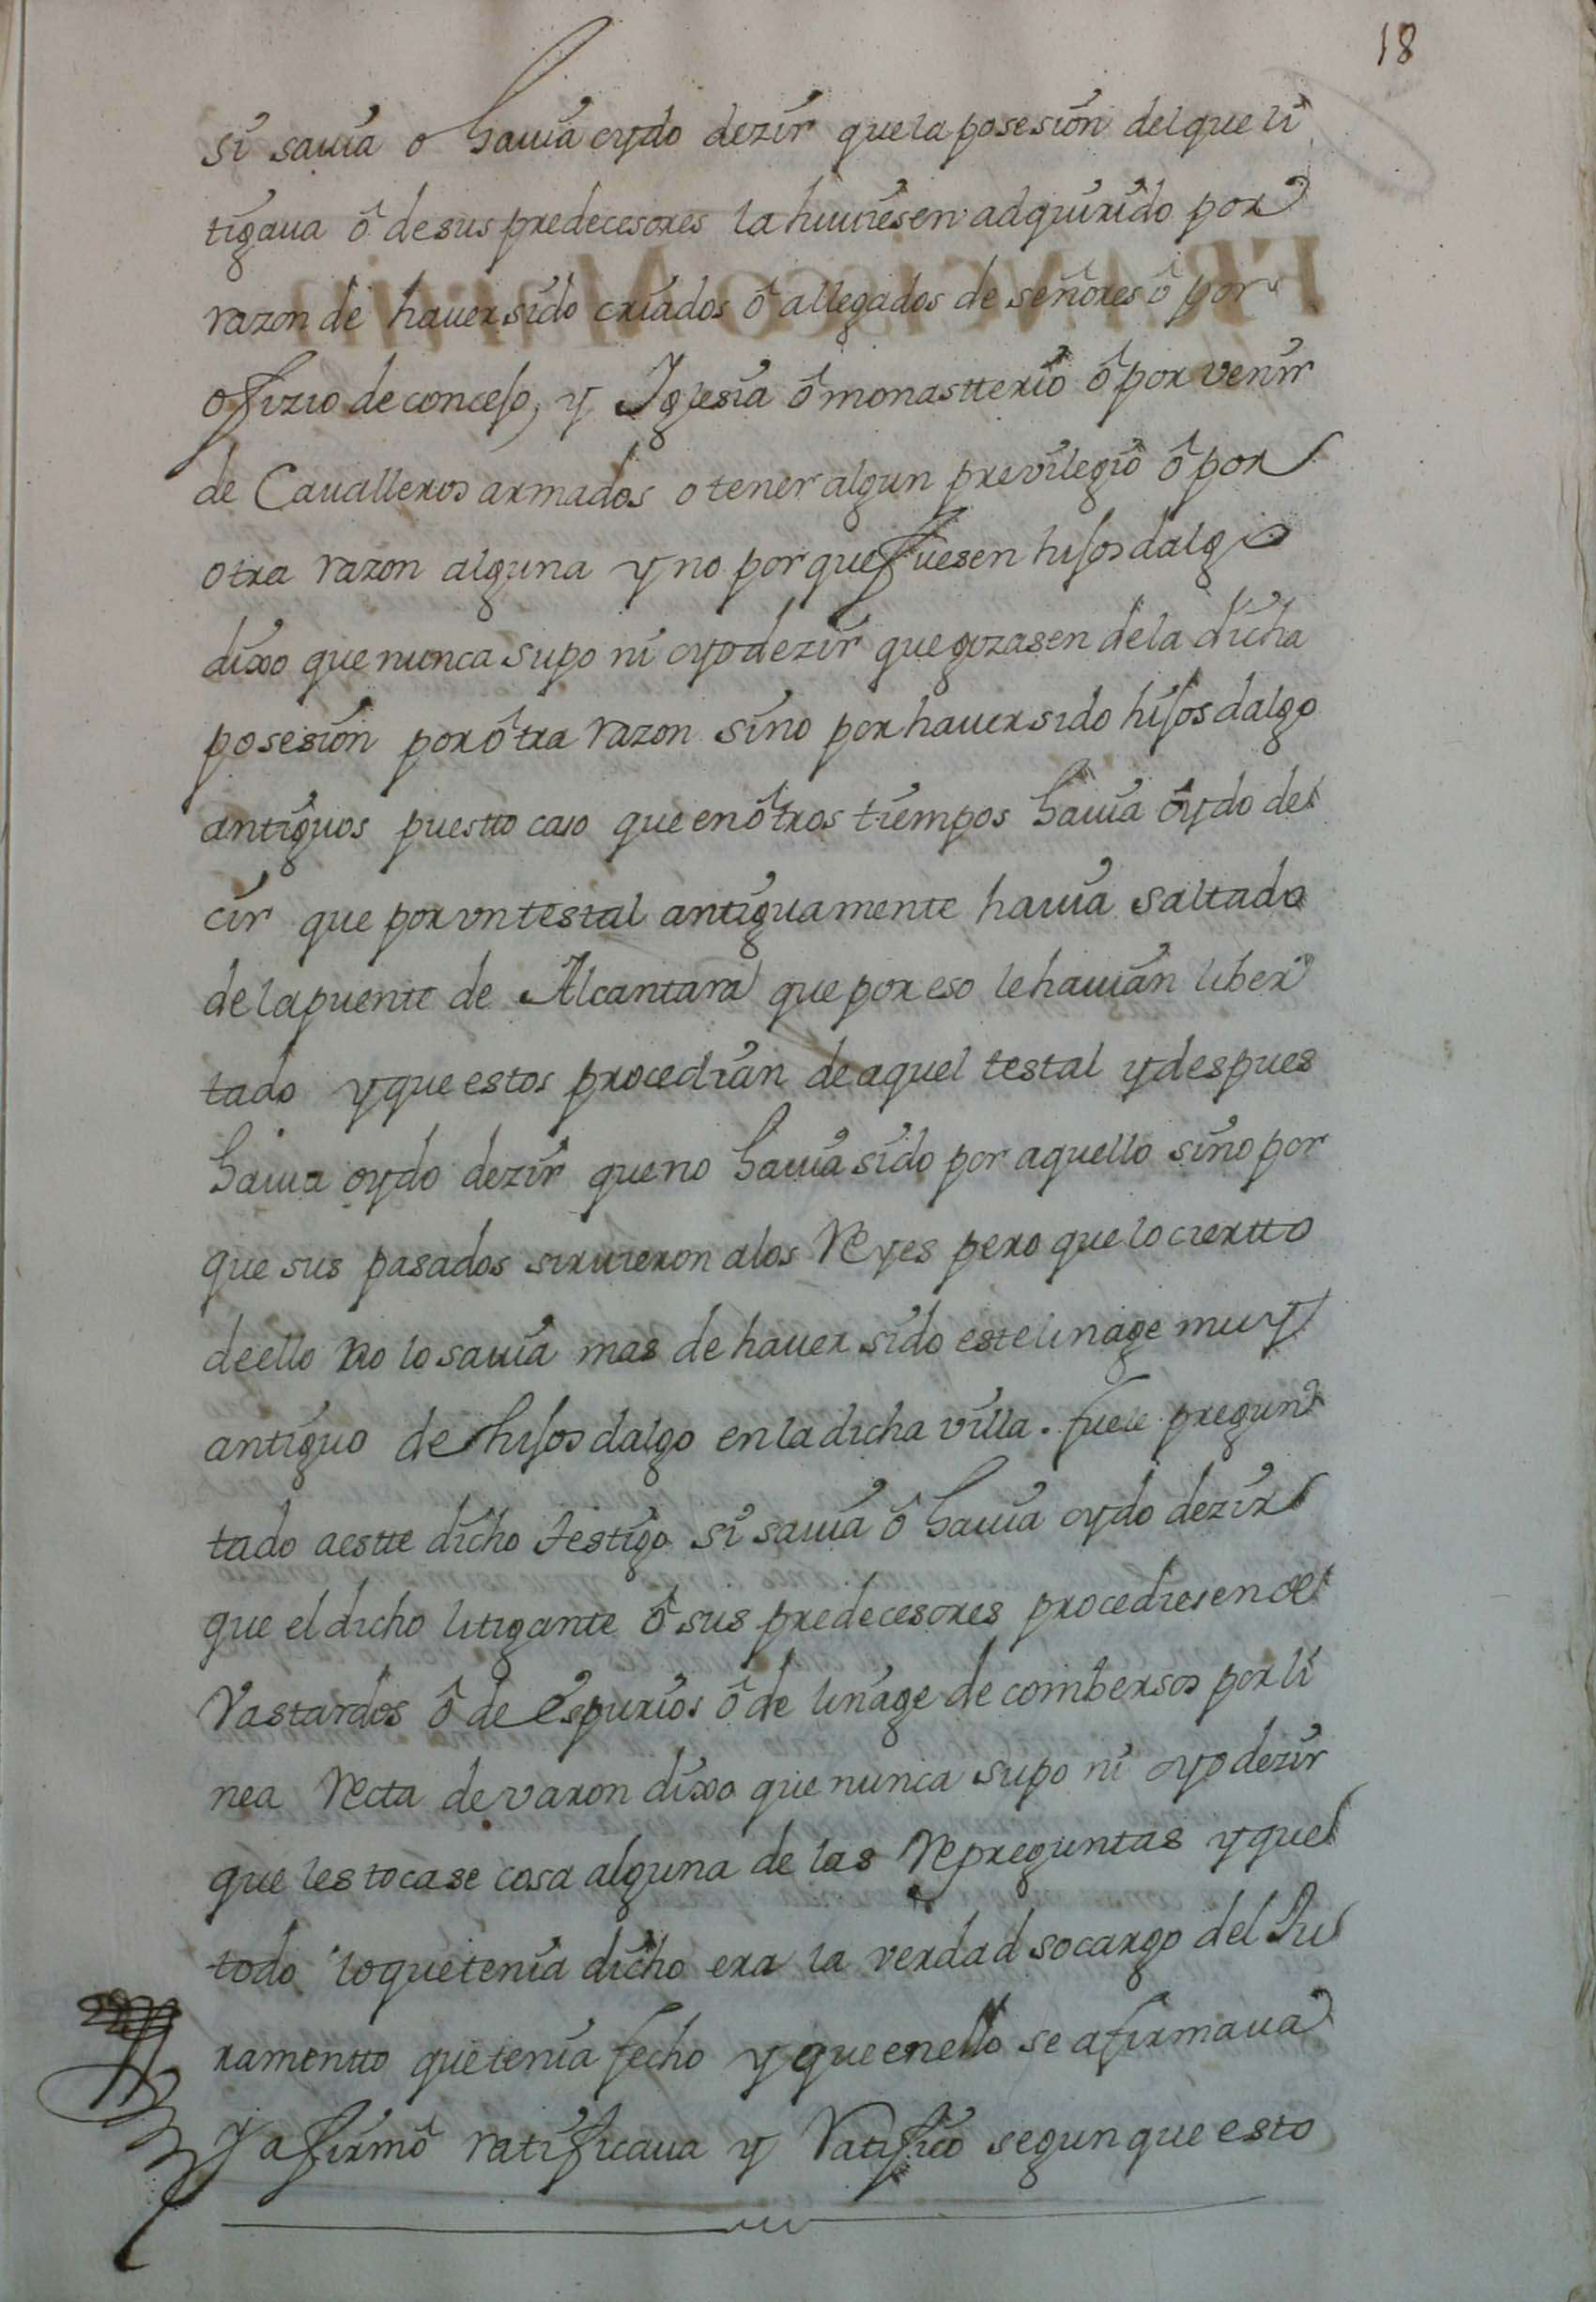 18
si sauia o hauia oydo dezir que la posesion del que li
tigaua ô de sus predecesores la huuiesen adquirido por
razon de hauer sido criados ô allegados de señores ô por
ofizio de concejo, y Iglesia ô monastterio ô por venir
de Caualleros armados o tener algun previlegio ô por
otra razon alguna y no por que fuesen hijos dalgo
dixo que nunca supo ni oyo dezir que gozasen de la dicha
posesion por ôtra razon sino por hauer sido hijos dalgo
antiguos puestto caso que en ôtros tiempos hauia ôydo de
cir que por vn testal antiguamente hauia saltado
de la puente de Alcantara que por eso le hauian liber
tado y que estos procedian de aquel testal y despues
hauia oydo dezir que no hauia sido por aquello sino por
que sus pasados siruieron a los Reyes pero que lo ciertto
de ello no lo sauia mas de hauer sido este linage muy
antiguo de hijos dalgo en la dicha villa. fuele pregun
tado a estte dicho testigo si sauia ô hauia oydo dezir
que el dicho litigante ô sus predecesores procediesen de
Vastardos ô de espurios ô de linage de combersos por li
nea Recta de varon dixo que nunca supo ni oyo dezir
que les tocase cosa alguna de las Repreguntas y que
todo lo que tenia dicho era la verdad so cargo del Ju
ramentto que tenia fecho y que en ello se afirmaua
y afirmô ratificaua y Ratifico segun que esto